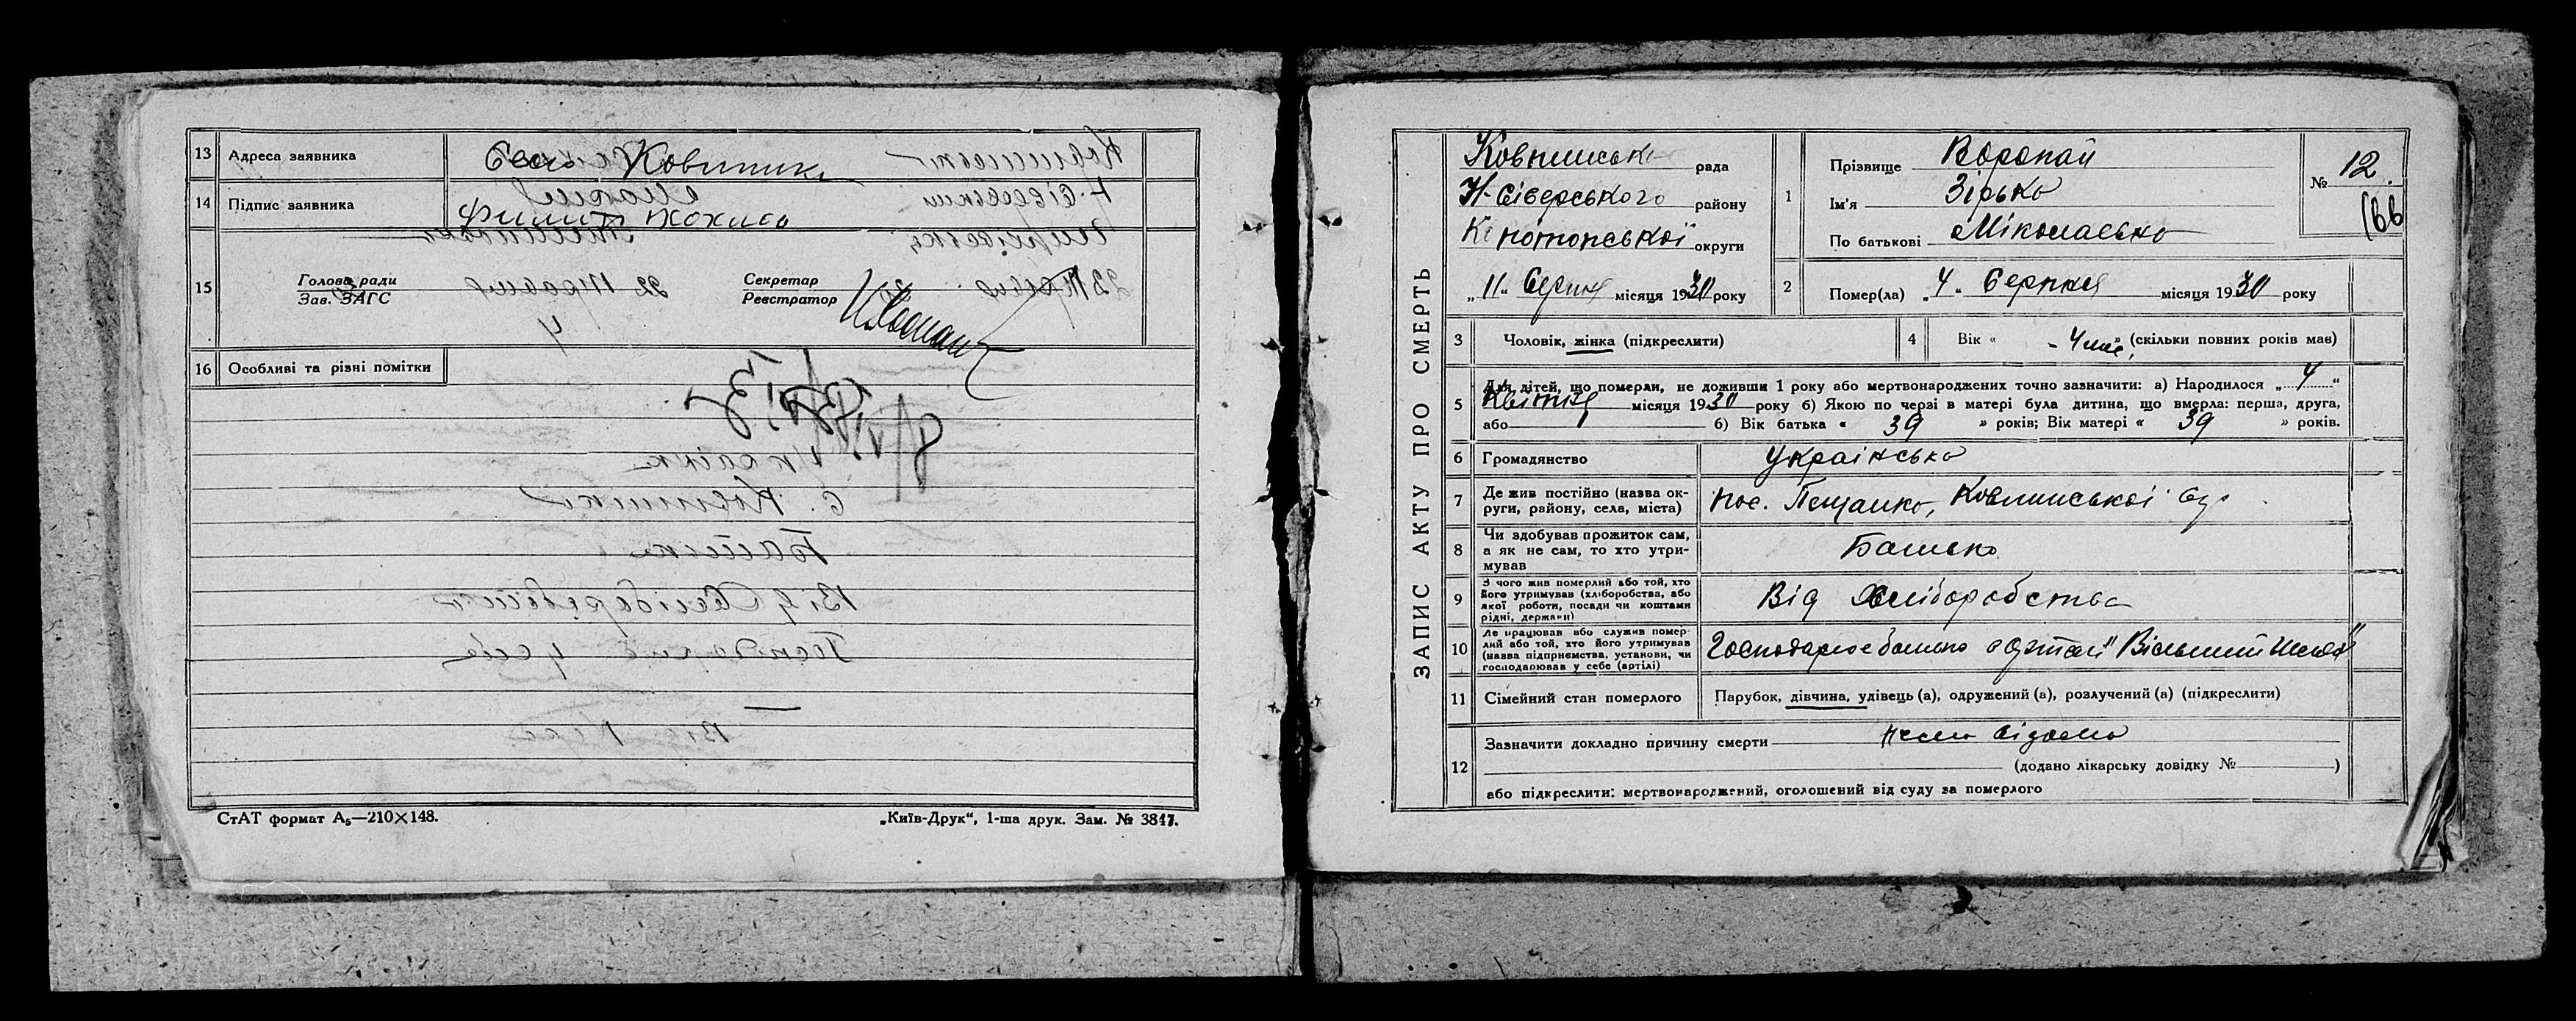 13 Адреса заявника Село Ковпинка
14 Підпис заявника
15 Голова ради Секретар
Зав. ЗАГС Реєстратор
16 Особливі та різні помітки
СтАТ формат А₅—210×148. „Київ-Друк“, 1-ша друк. Зам. № 3847.
ЗАПИС АКТУ ПРО СМЕРТЬ
Ковпинська рада
Н-Сіверського району
Конотопської округи
„11„ Серпня місяця 1930 року
1 Прізвище Воропай
Ім'я Зірько
По батькові Міколаевна
№ 12.
166
2 Помер(ла) „4„ Серпня місяця 1930 року
3 Чоловік, жінка (підкреслити)
4 Вік « - 4 міс. » (скільки повних років має)
5 Для дітей, що померли, не доживши 1 року або мертвонароджених точно зазначити: а) Народилося „4“
Квітня місяця 1930 року б) Якою по черзі в матері була дитина, що вмерла: перша, друга,
або б) Вік батька « 39 » років; Вік матері « 39 » років.
6 Громадянство Українська
7 Де жив постійно (назва ок-
руги, району, села, міста) пос. Пещанка, Ковпинської с/р
8 Чи здобував прожиток сам,
а як не сам, то хто утри-
мував Батько
9 З чого жив померлий або той, хто
його утримував (хліборобства, або
якої роботи, посади чи коштами
рідні, держави) Від Хліборобства
10 Де працював або служив помер-
лий або той, хто його утримував
(назва підприємства, установи, чи
господарював у себе (артілі) Господарює батько в артілі "Вільний Шлях"
11 Сімейний стан померлого Парубок, дівчина, удівець (а), одружений (а), розлучений (а) (підкреслити)
12 Зазначити докладно причину смерти невідомо
(додано лікарську довідку № )
або підкреслити: мертвонароджений, оголошений від суду за померлого